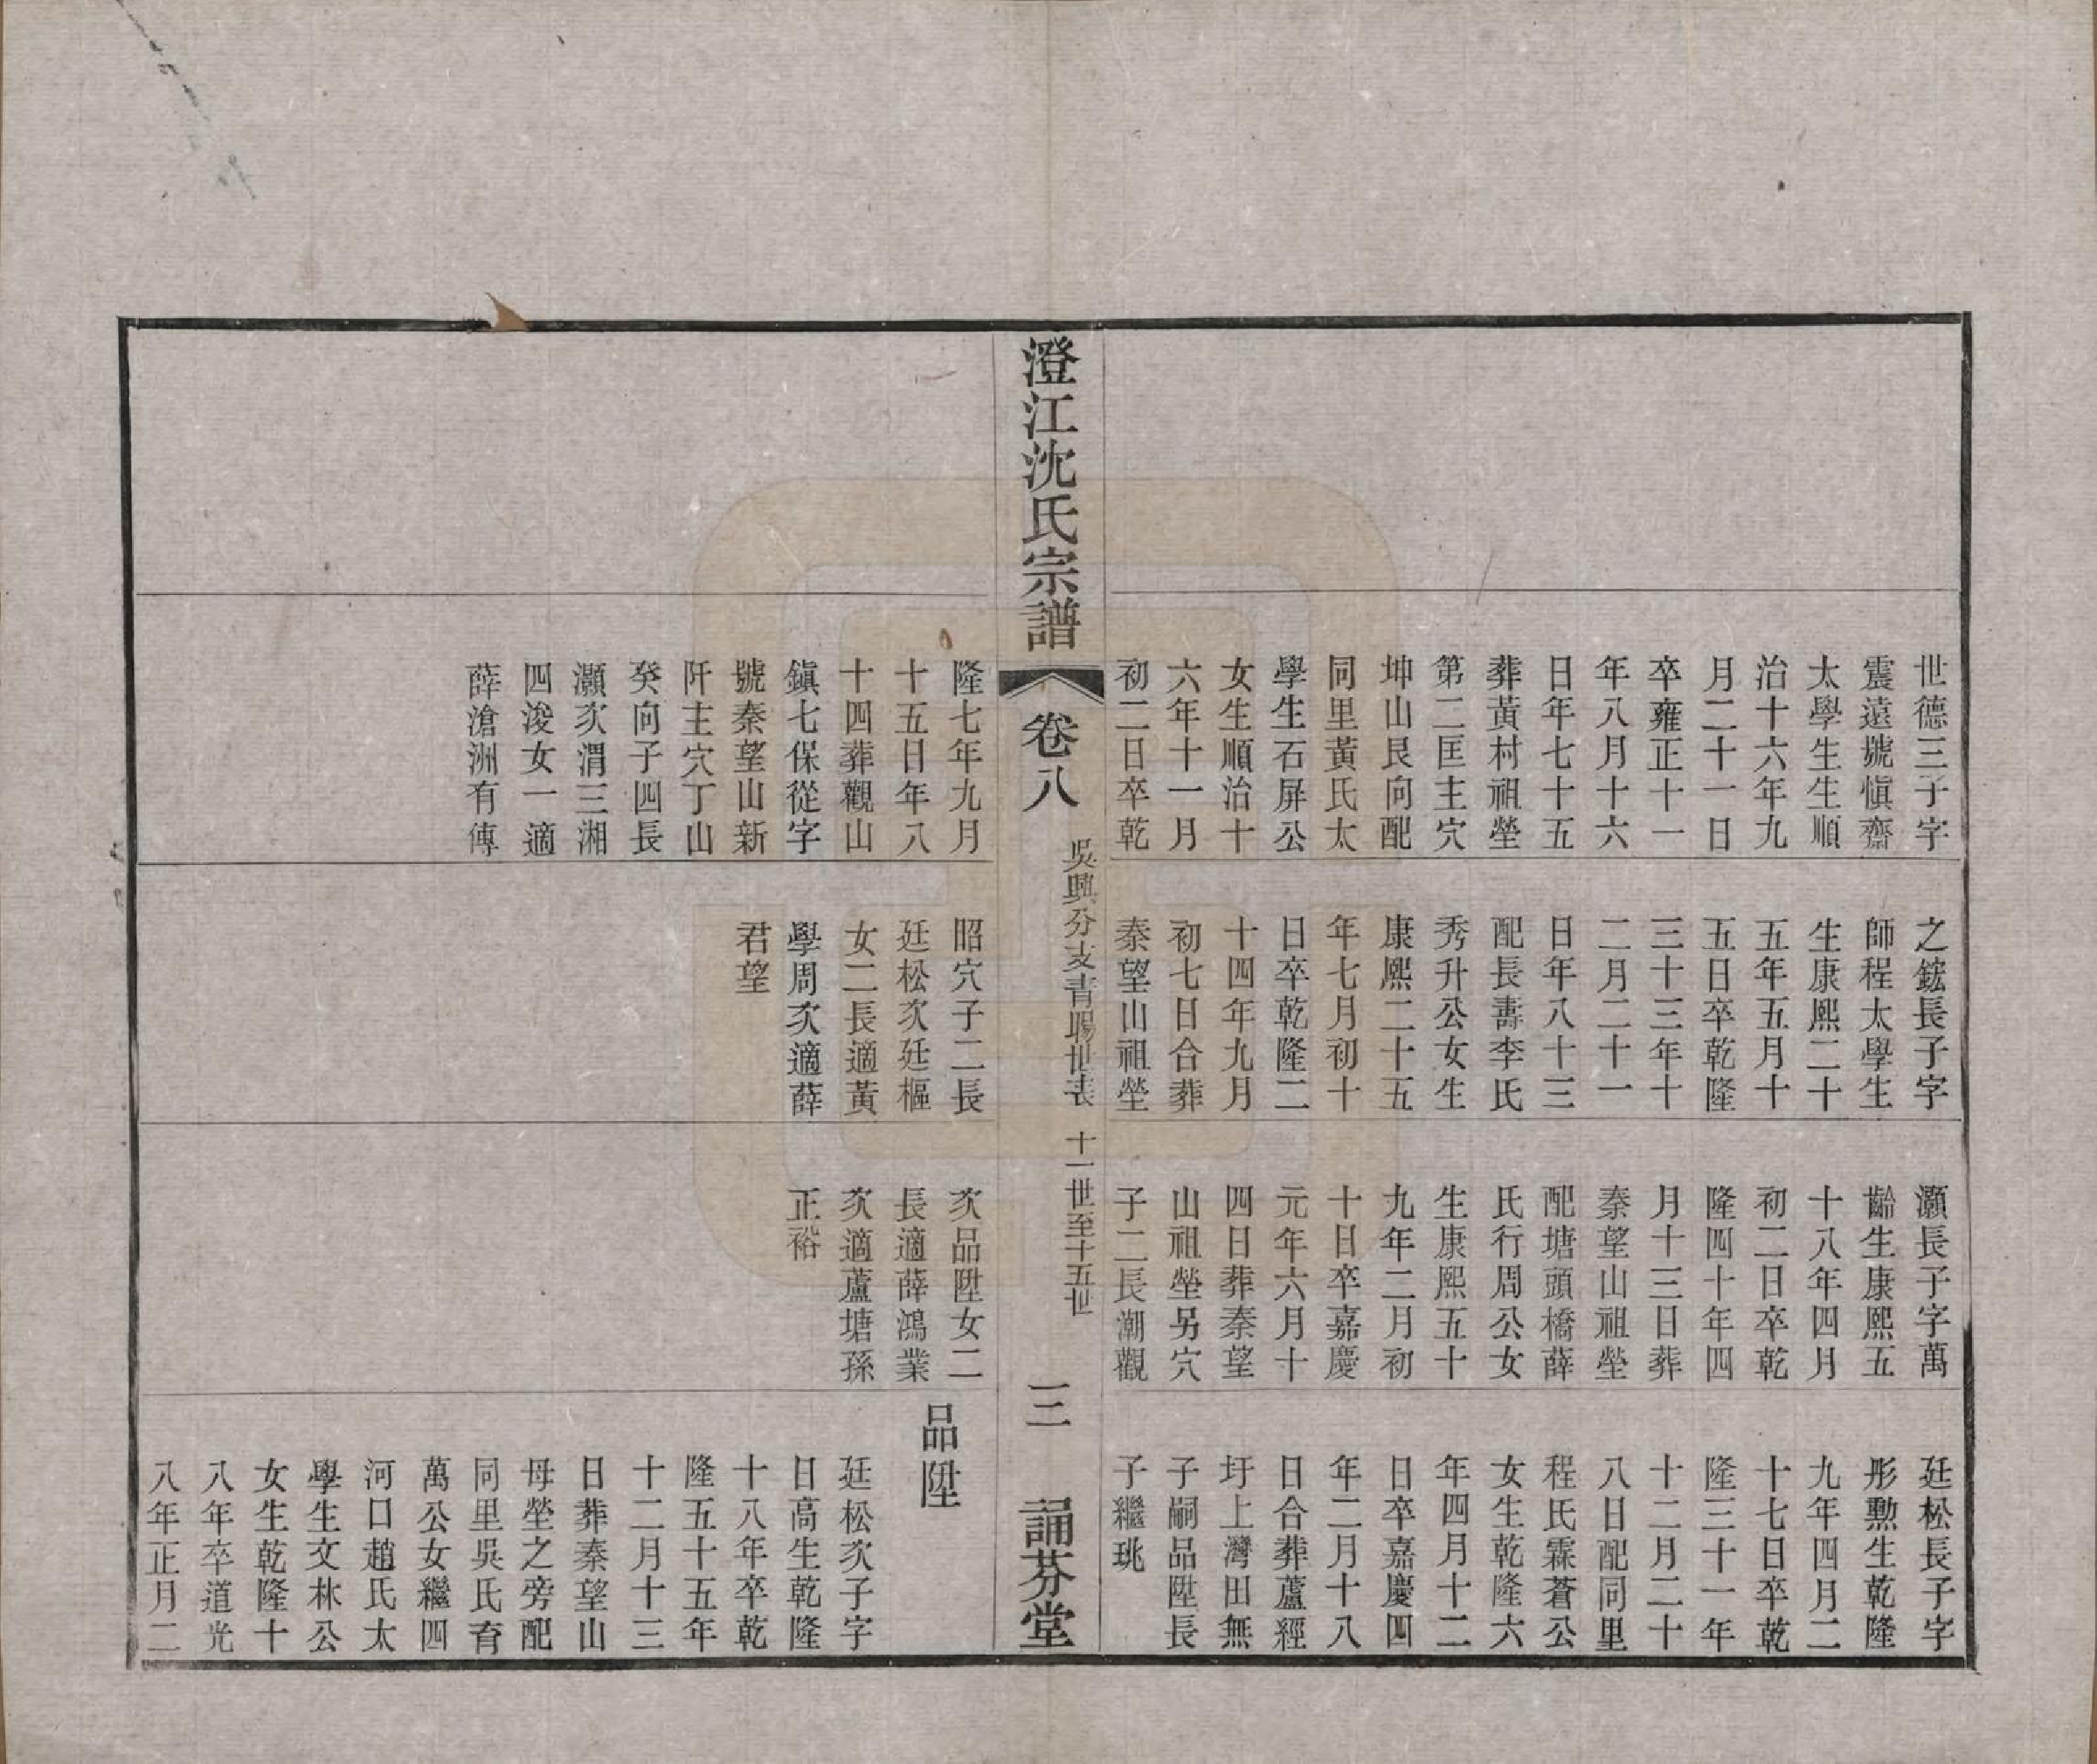 世德三子字
震遠號愼齋
太學生生順
治十六年九
月二十一日
卒雍正十一
年八月十六
日年七十五
葬黃村祖塋
第二匡主穴
坤山艮向配
同里黃氏太
學生石屏公
女生順治十
六年十一月
初二日卒乾
之鋐長子字
師程太學生
生康熙二十
五年五月十
五日卒乾隆
三十三年十
二月二十一
日年八十三
配長壽李氏
秀升公女生
康熙二十五
年七月初十
日卒乾隆二
十四年九月
初七日合葬
秦望山祖塋
灝長子字萬
齡生康熙五
十八年四月
初二日卒乾
隆四十年四
月十三日葬
秦望山祖塋
配塘頭橋薛
氏行周公女
生康熙五十
九年二月初
十日卒嘉慶
元年六月十
四日葬秦望
山祖塋另穴
子二長潮觀
廷松長子字
彤勲生乾隆
九年四月二
十七日卒乾
隆三十一年
十二月二十
八日配同里
程氏霖蒼公
女生乾隆六
年四月十二
日卒嘉慶四
年二月十八
日合葬蘆經
圩上灣田無
子嗣品陞長
子繼珧
澄江沈氏宗譜
卷八
吳興分支青暘世表 十一世至十五世
三
誦芬堂
隆七年九月
十五日年八
十四葬觀山
鎮七保從字
號秦望山新
阡主穴丁山
癸向子四長
灝次渭三湘
四浚女一適
薛滄洲有傳
昭穴子二長
廷松次廷樞
女二長適黃
學周次適薛
君望
次品陞女二
長適薛鴻業
次適蘆塘孫
正裕
品陞
廷松次子字
日高生乾隆
十八年卒乾
隆五十五年
十二月十三
日葬秦望山
母塋之旁配
同里吳氏育
萬公女繼四
河口趙氏太
學生文林公
女生乾隆十
八年卒道光
八年正月二